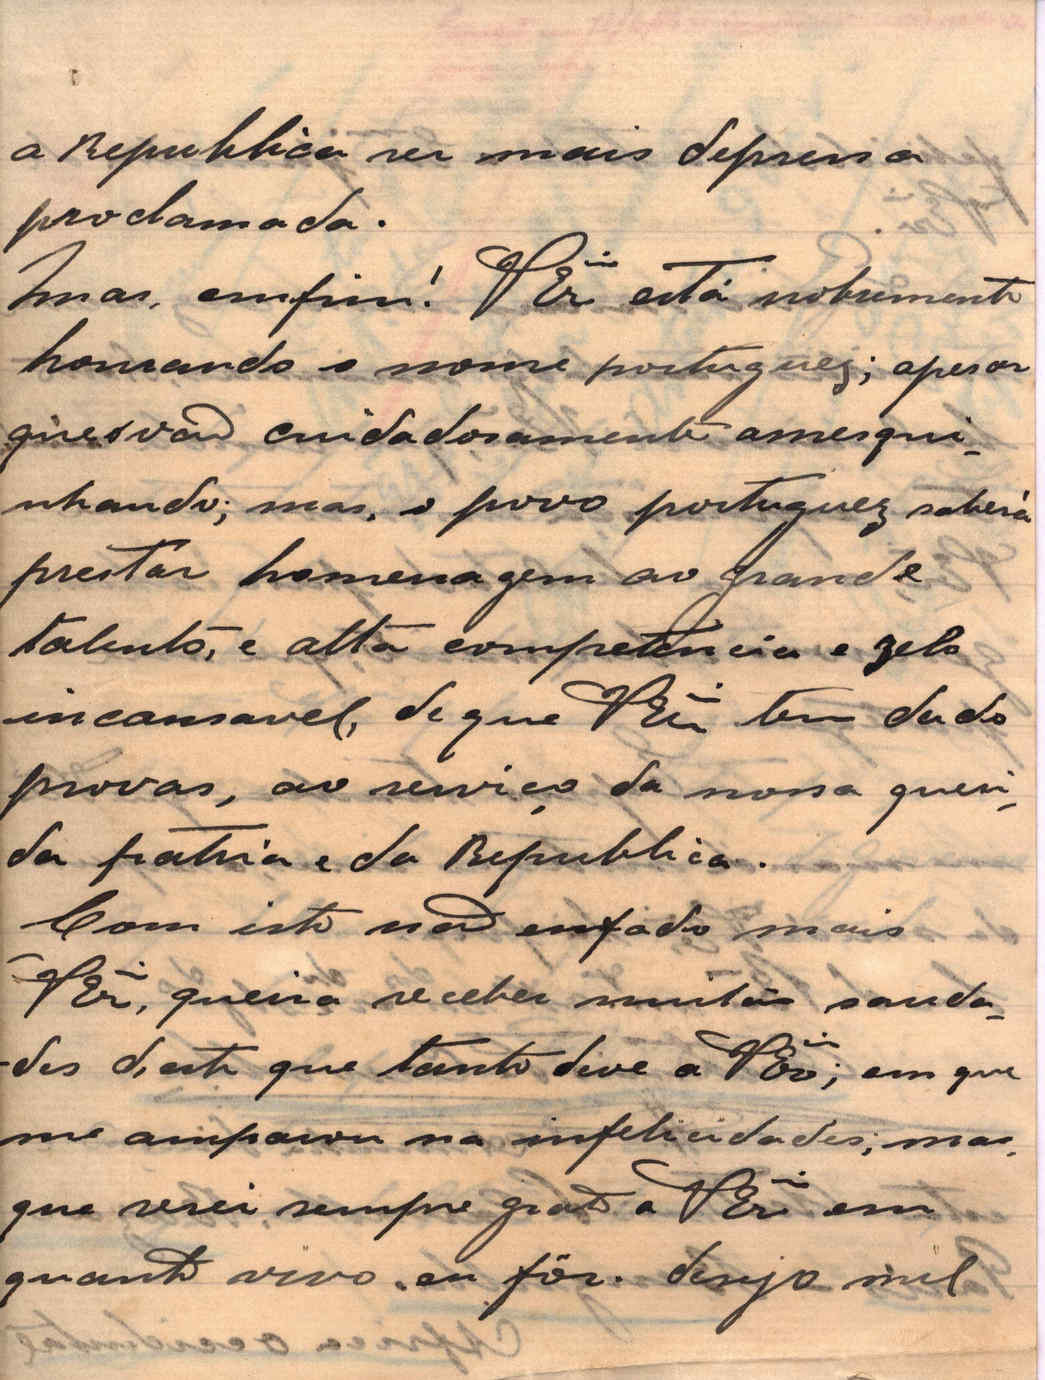 a Republica ser mais depressa
proclamada.
Mas, emfim! V Exª está nobremente
honrando o nome portuguez; apesar
que o vão cuidadosamente amesqui-
nhando; mas, o povo portuguez saberá
prestar homenagem ao grande
talento, e alta competencia e zelo
incansavel, de que V Exª tem dado
provas, ao serviço da nossa queri-
da patria e da Republica.
Com isto não enfado mais
V Exª, queira receber muitas sauda-
des d'este que tanto deve a V Exª; em que
me amparou na infelicidades; mas,
que serei sempre grato a V Exª em
quanto vivo eu fôr. desejo mil